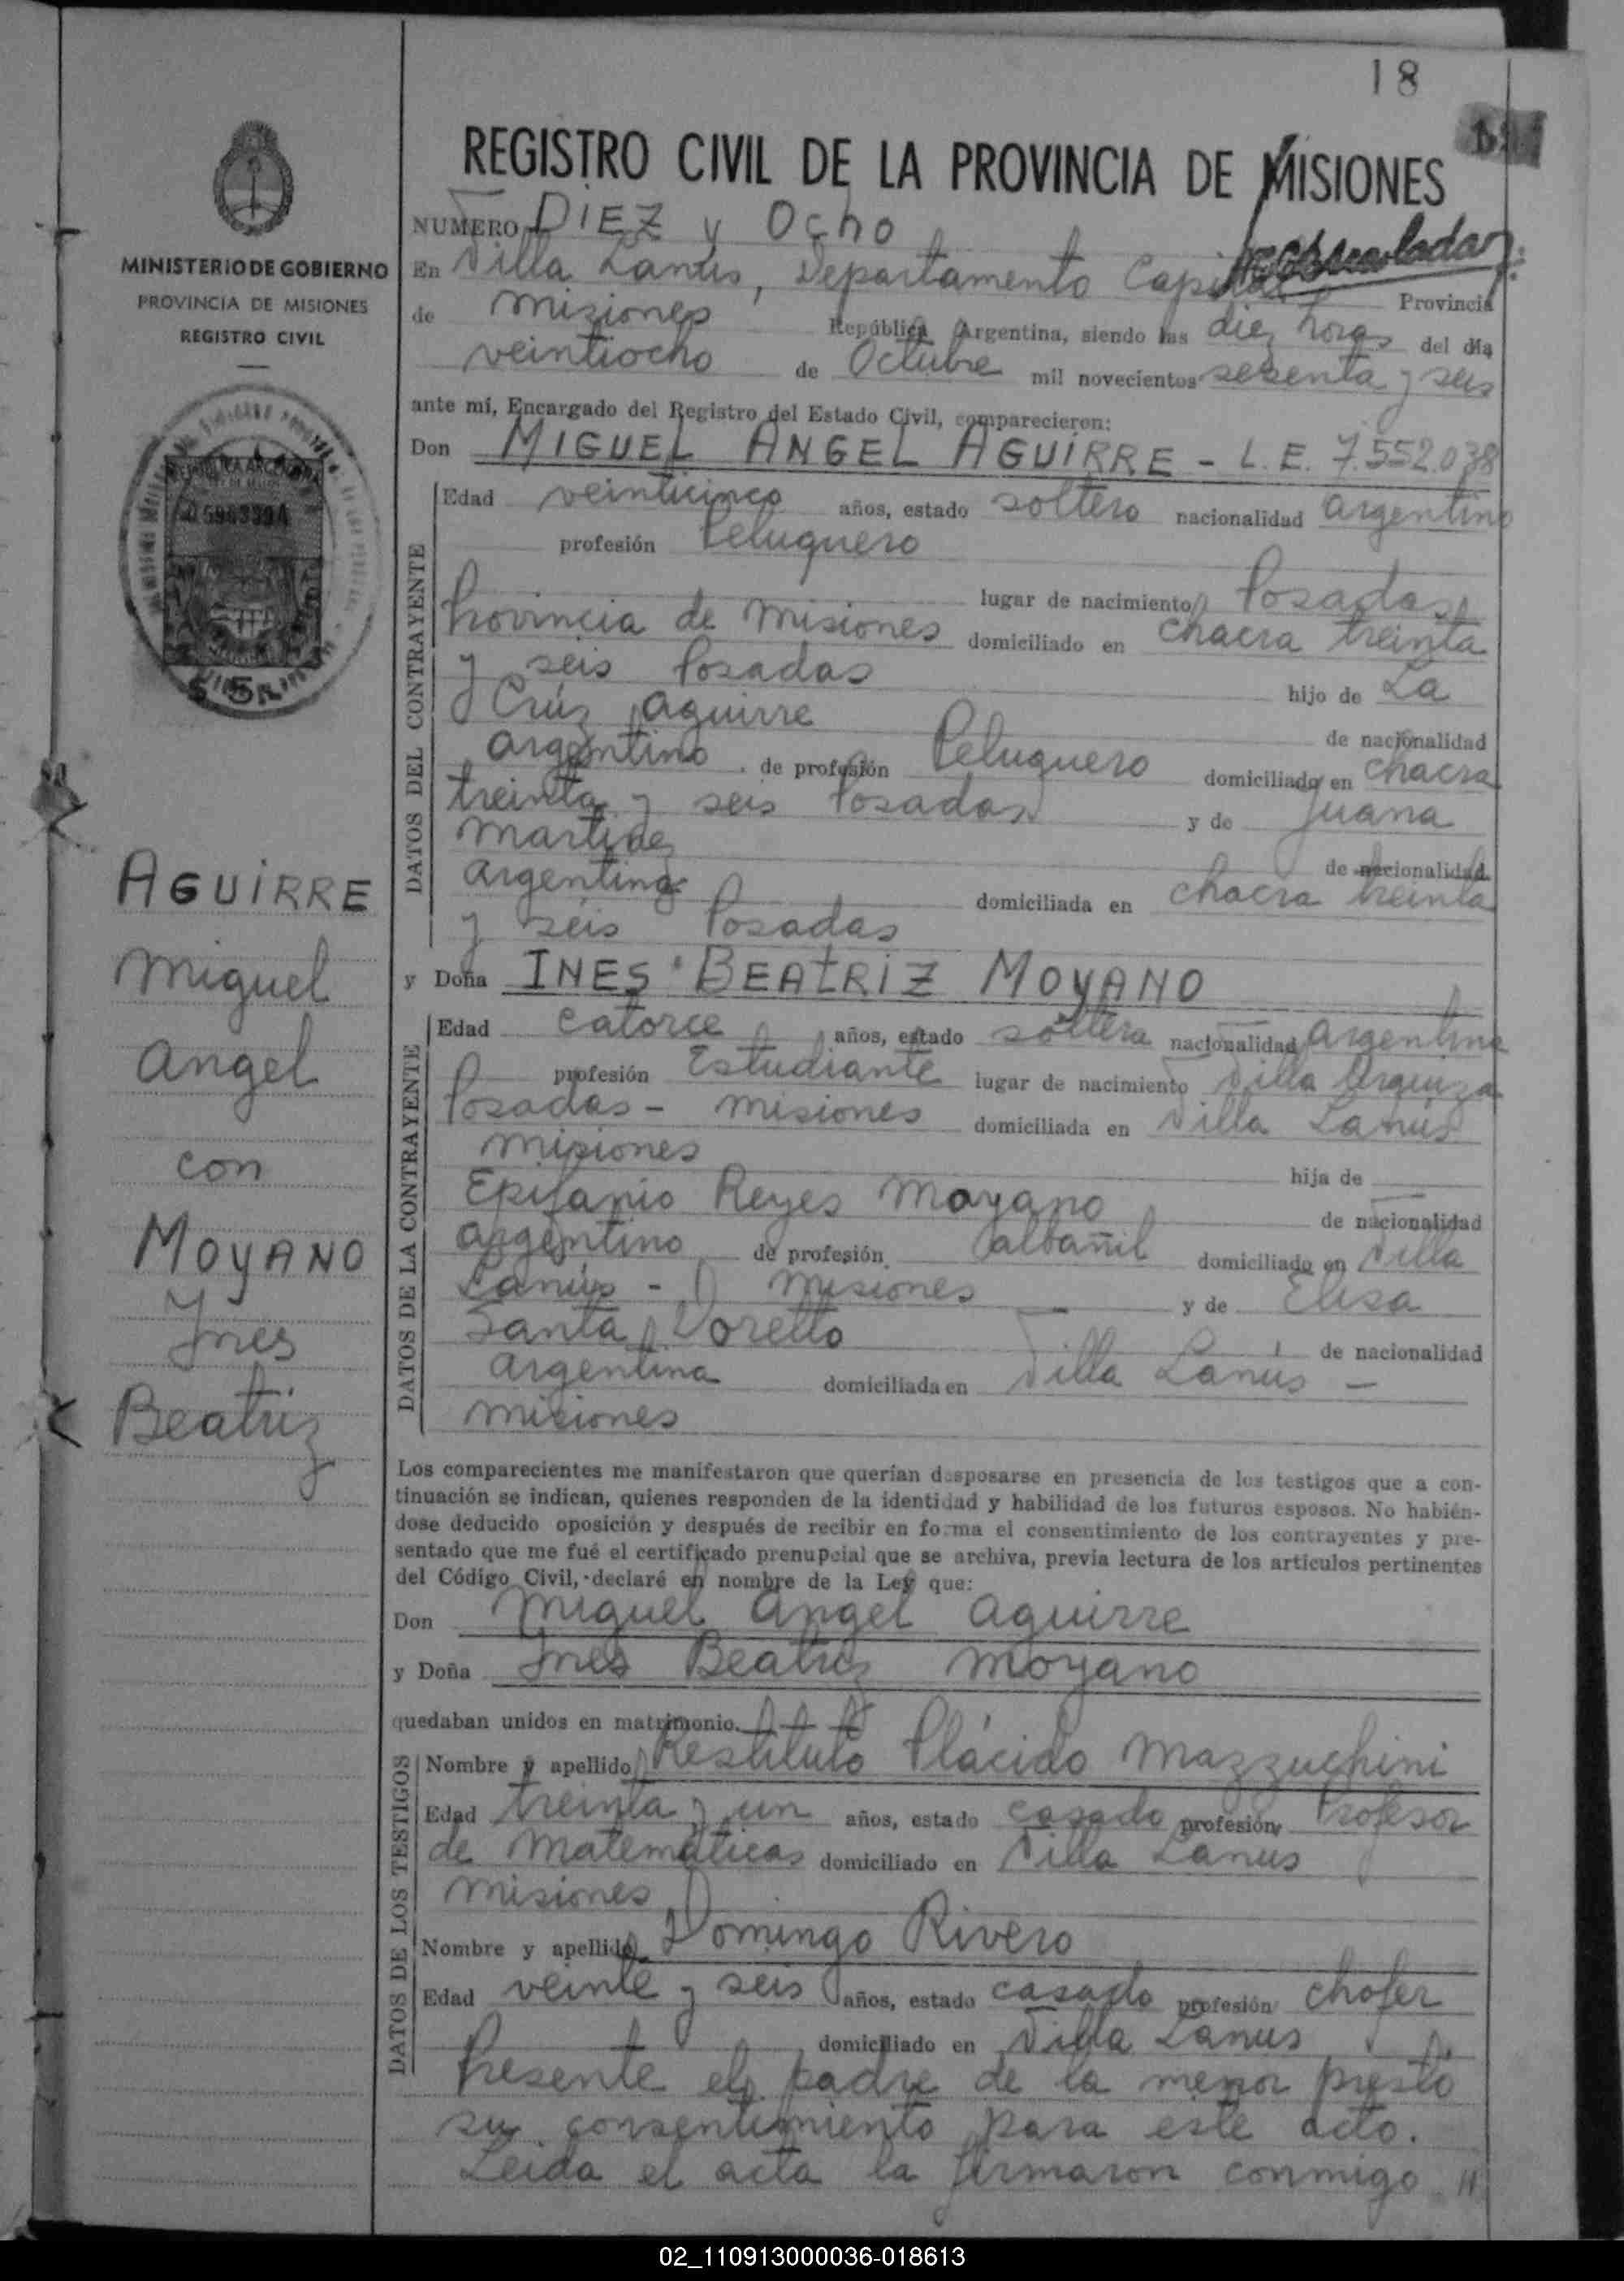 18
REGISTRO CIVIL DE LA PROVINCIA DE MISIONES
MINISTERIO DE GOBIERNO
PROVINCIA DE MISIONES
REGISTRO CIVIL
NUMERO DIEZ y Ocho
En Villa Lanús, Departamento Capital Provincia
de Misiones República Argentina, siendo las diez horas del día
veintiocho de Octubre mil novecientos sesenta y seis
ante mí, Encargado del Registro del Estado Civil, comparecieron:
Don MIGUEL ANGEL AGUIRRE - L. E. 7.552.038
DATOS DEL CONTRAYENTE
Edad veinticinco años, estado soltero nacionalidad argentino
profesión Peluquero
lugar de nacimiento Posadas
Provincia de Misiones domiciliado en chacra treinta
y seis Posadas hijo de La
Crúz Aguirre de nacionalidad
argentino de profesión Peluquero domiciliado en chacra
treinta y seis Posadas y de Juana
Martinez de nacionalidad
argentina domiciliada en chacra treinta
y seis Posadas
y Doña INES BEATRIZ MOYANO
DATOS DE LA CONTRAYENTE
Edad catorce años, estado soltera nacionalidad argentina
profesión Estudiante lugar de nacimiento Villa Urquiza
Posadas - Misiones domiciliada en Villa Lanús
Misiones hija de
Epifanio Reyes Moyano de nacionalidad
argentino de profesión albañil domiciliado en Villa
Lanús - Misiones y de Elisa
Santa Doretto de nacionalidad
argentina domiciliada en Villa Lanús -
Misiones
Los comparecientes me manifestaron que querían desposarse en presencia de los testigos que a con-
tinuación se indican, quienes responden de la identidad y habilidad de los futuros esposos. No habién-
dose deducido oposición y después de recibir en forma el consentimiento de los contrayentes y pre-
sentado que me fué el certificado prenupcial que se archiva, previa lectura de los artículos pertinentes
del Código Civil, declaré en nombre de la Ley que:
Don Miguel Angel Aguirre
y Doña Ines Beatriz Moyano
quedaban unidos en matrimonio.
DATOS DE LOS TESTIGOS
Nombre y apellido Restituto Plácido Mazzuchini
Edad treinta y un años, estado casado profesión Profesor
de Matemáticas domiciliado en Villa Lanus
Misiones
Nombre y apellido Domingo Rivero
Edad veinte y seis años, estado casado profesión chofer
domiciliado en Villa Lanus
Presente el padre de la menor prestó
su consentimiento para este acto.
Leida el acta la firmaron conmigo //
AGUIRRE
Miguel
Angel
con
MOYANO
Ines
Beatriz
02_110913000036-018613